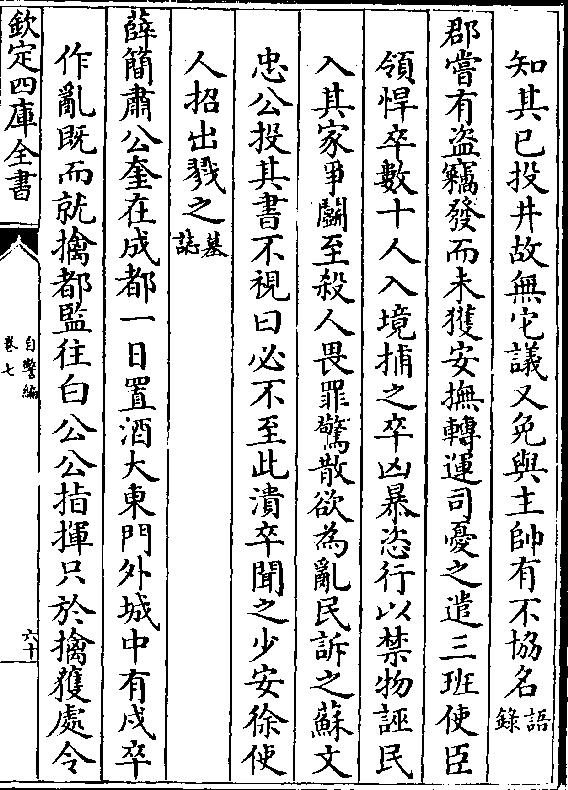 知其已投井故無它議又免與主帥有不協名語錄
郡嘗有盗竊發而未獲安撫轉運司憂之遣三班使臣
領悍卒數十人入境捕之卒凶暴恣行以禁物誣民
入其家爭鬭至殺人畏罪驚散欲為亂民訴之蘇文
忠公投其書不視曰必不至此潰卒聞之少安徐使
人招出戮之墓誌
薛簡肅公奎在成都一日置酒大東門外城中有戍卒
作亂既而就擒都監往白公公指揮只於擒獲處令
欽定四庫全書
自警編
卷七
六十